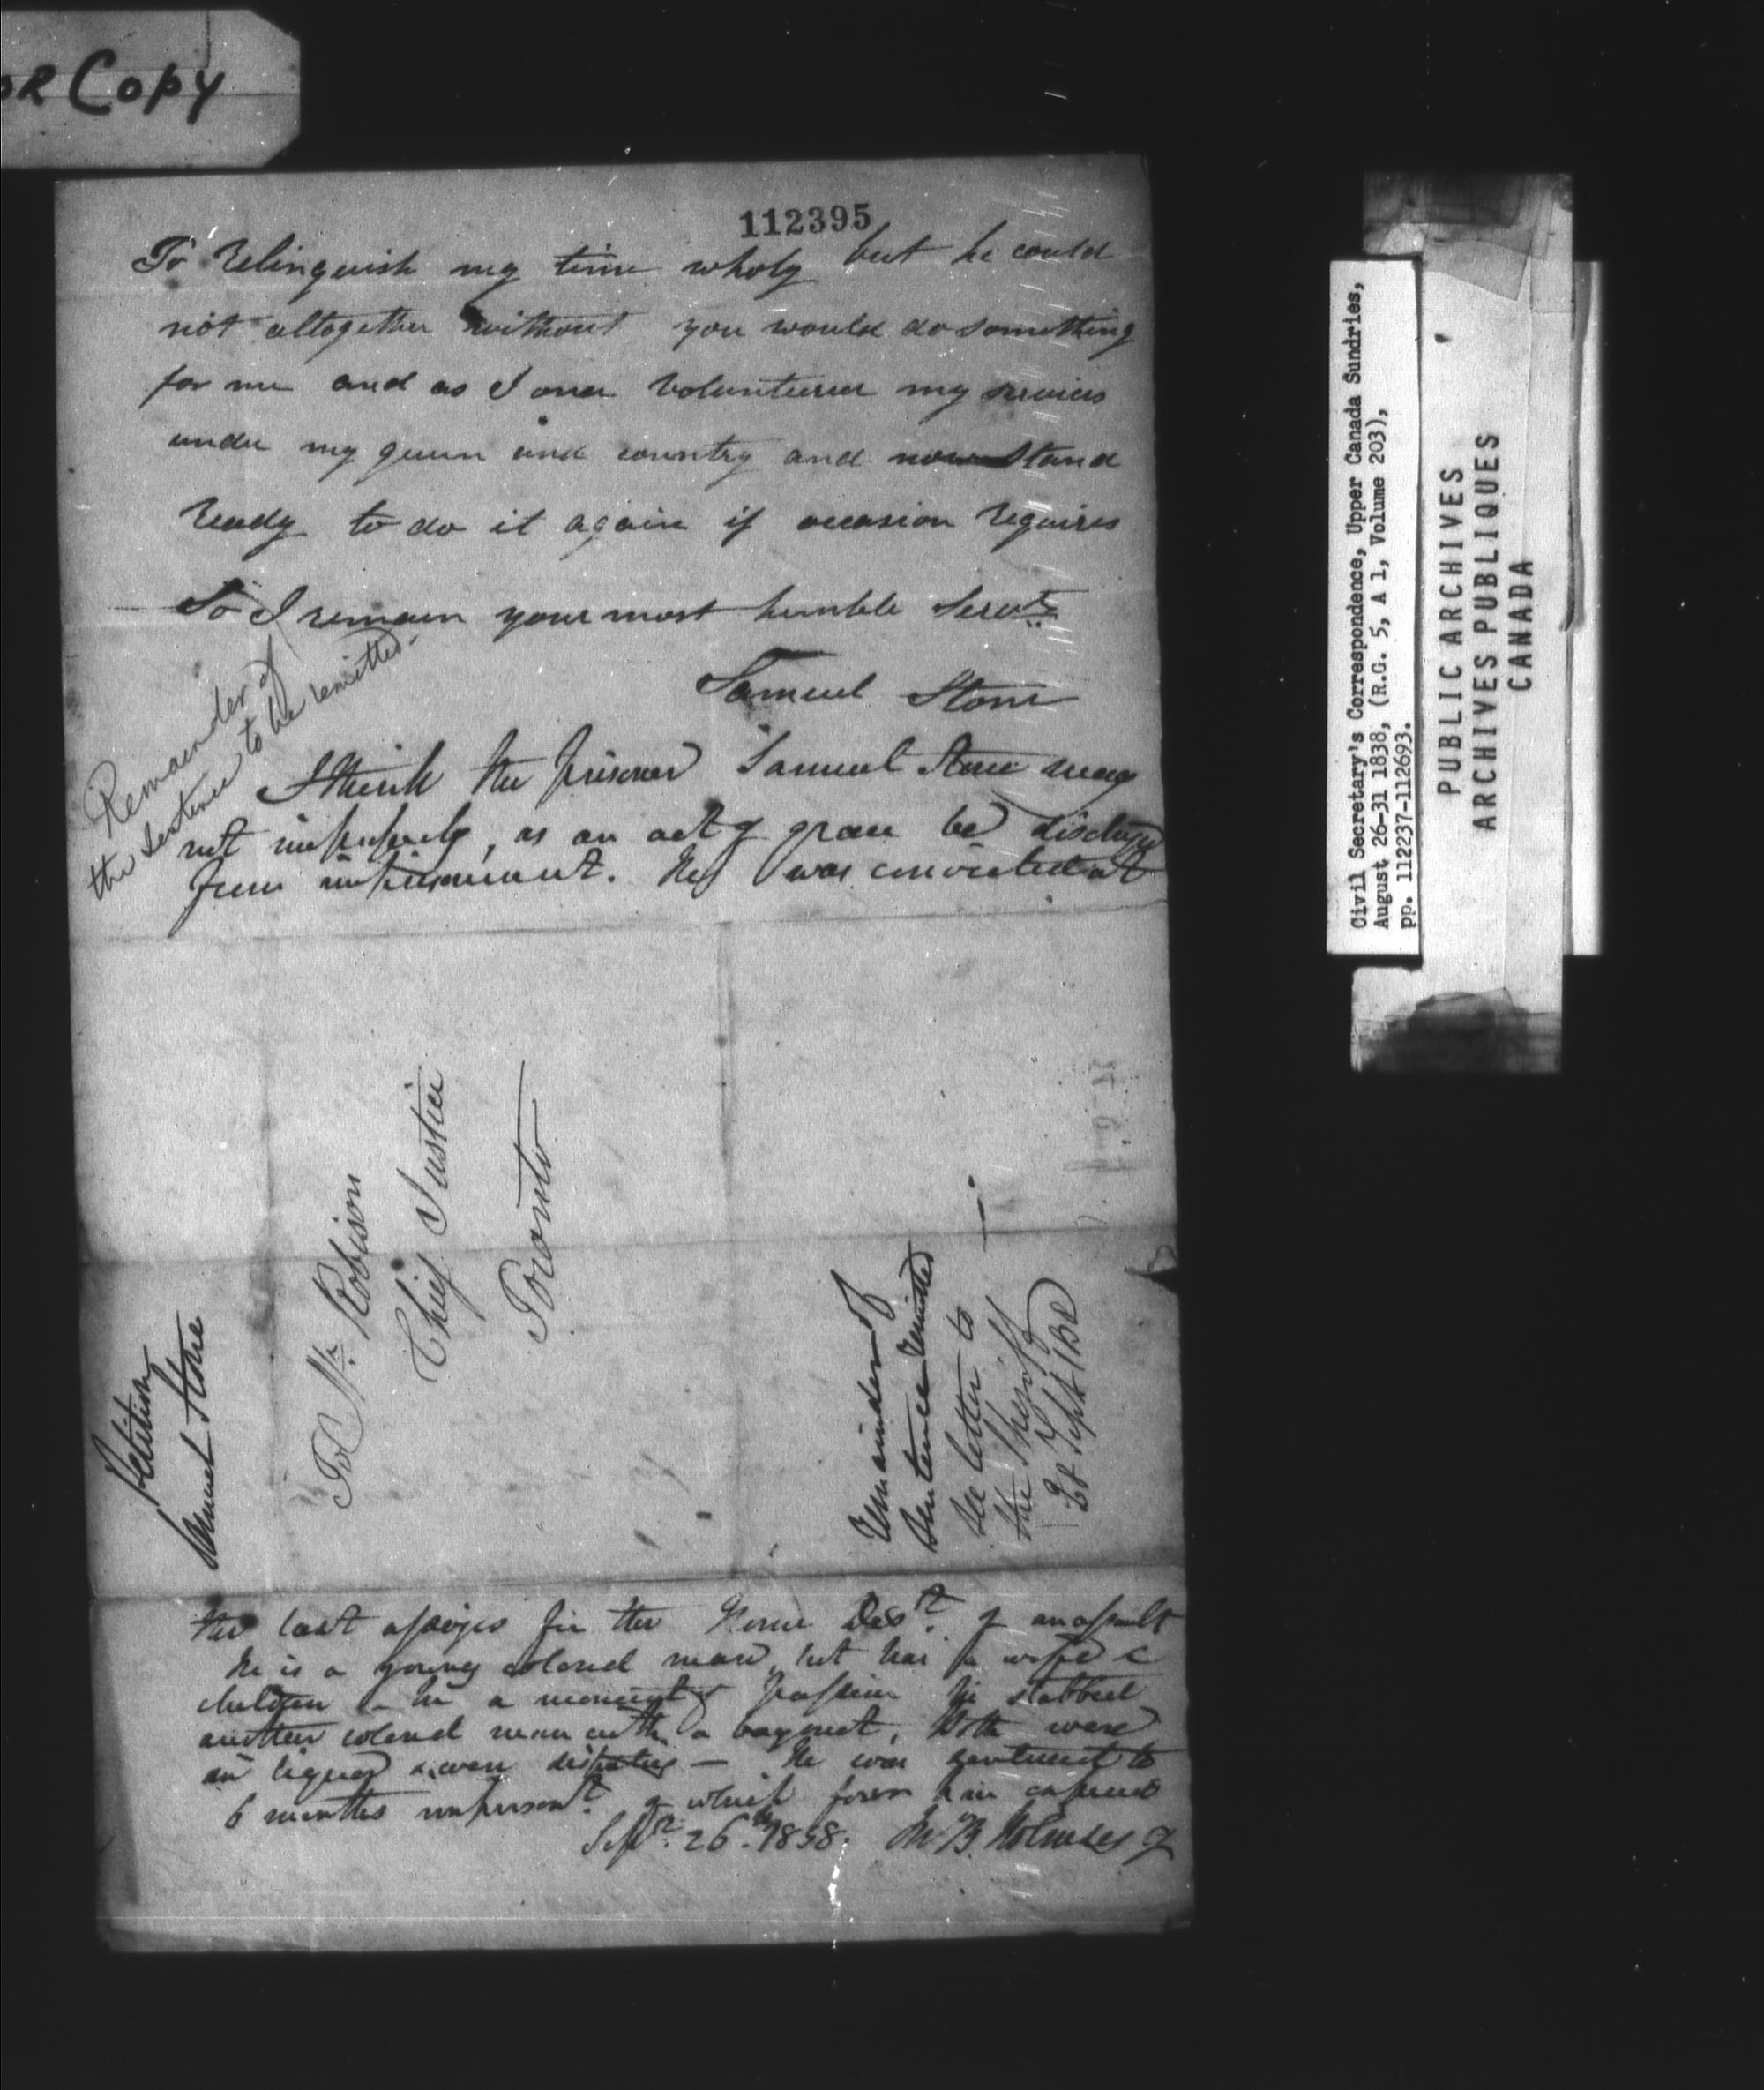 OR Copy
112395
To Relinquish my time wholy but he could
not altogether without you would do something
for me and as I once volunteered my services
under my queen and country and now stand
Ready to do it again if occasion Requires
So I remain your most humble Servt
Samuel Stone
Remainder of
the Sentence to be remitted.
I think the prisoner Samuel Stone may
not improperly, as an act of grace be discharged
from imprisonment. He was convicted at
To Mr. Robison
Chief Justice
Toronto
Petition
Samuel Stone
Remainder of
Sentence remitted
See letter to
the Sheriff
28 Sept 1838
the last assizes for the Home Dist. of an assault
He is a young colored man, but has a wife &
children – In a moment of passion he stabbed
another colored man with a bayonet, Both were
in liquor & were disputing — He was sentenced to
6 months imprisont. of which four have expired
Sept. 26th 1838.
Civil Secretary's Correspondence, Upper Canada Sundries,
August 26-31 1838, (R.G. 5, A 1, Volume 203),
pp. 112237-112693.
PUBLIC ARCHIVES
ARCHIVES PUBLIQUES
CANADA